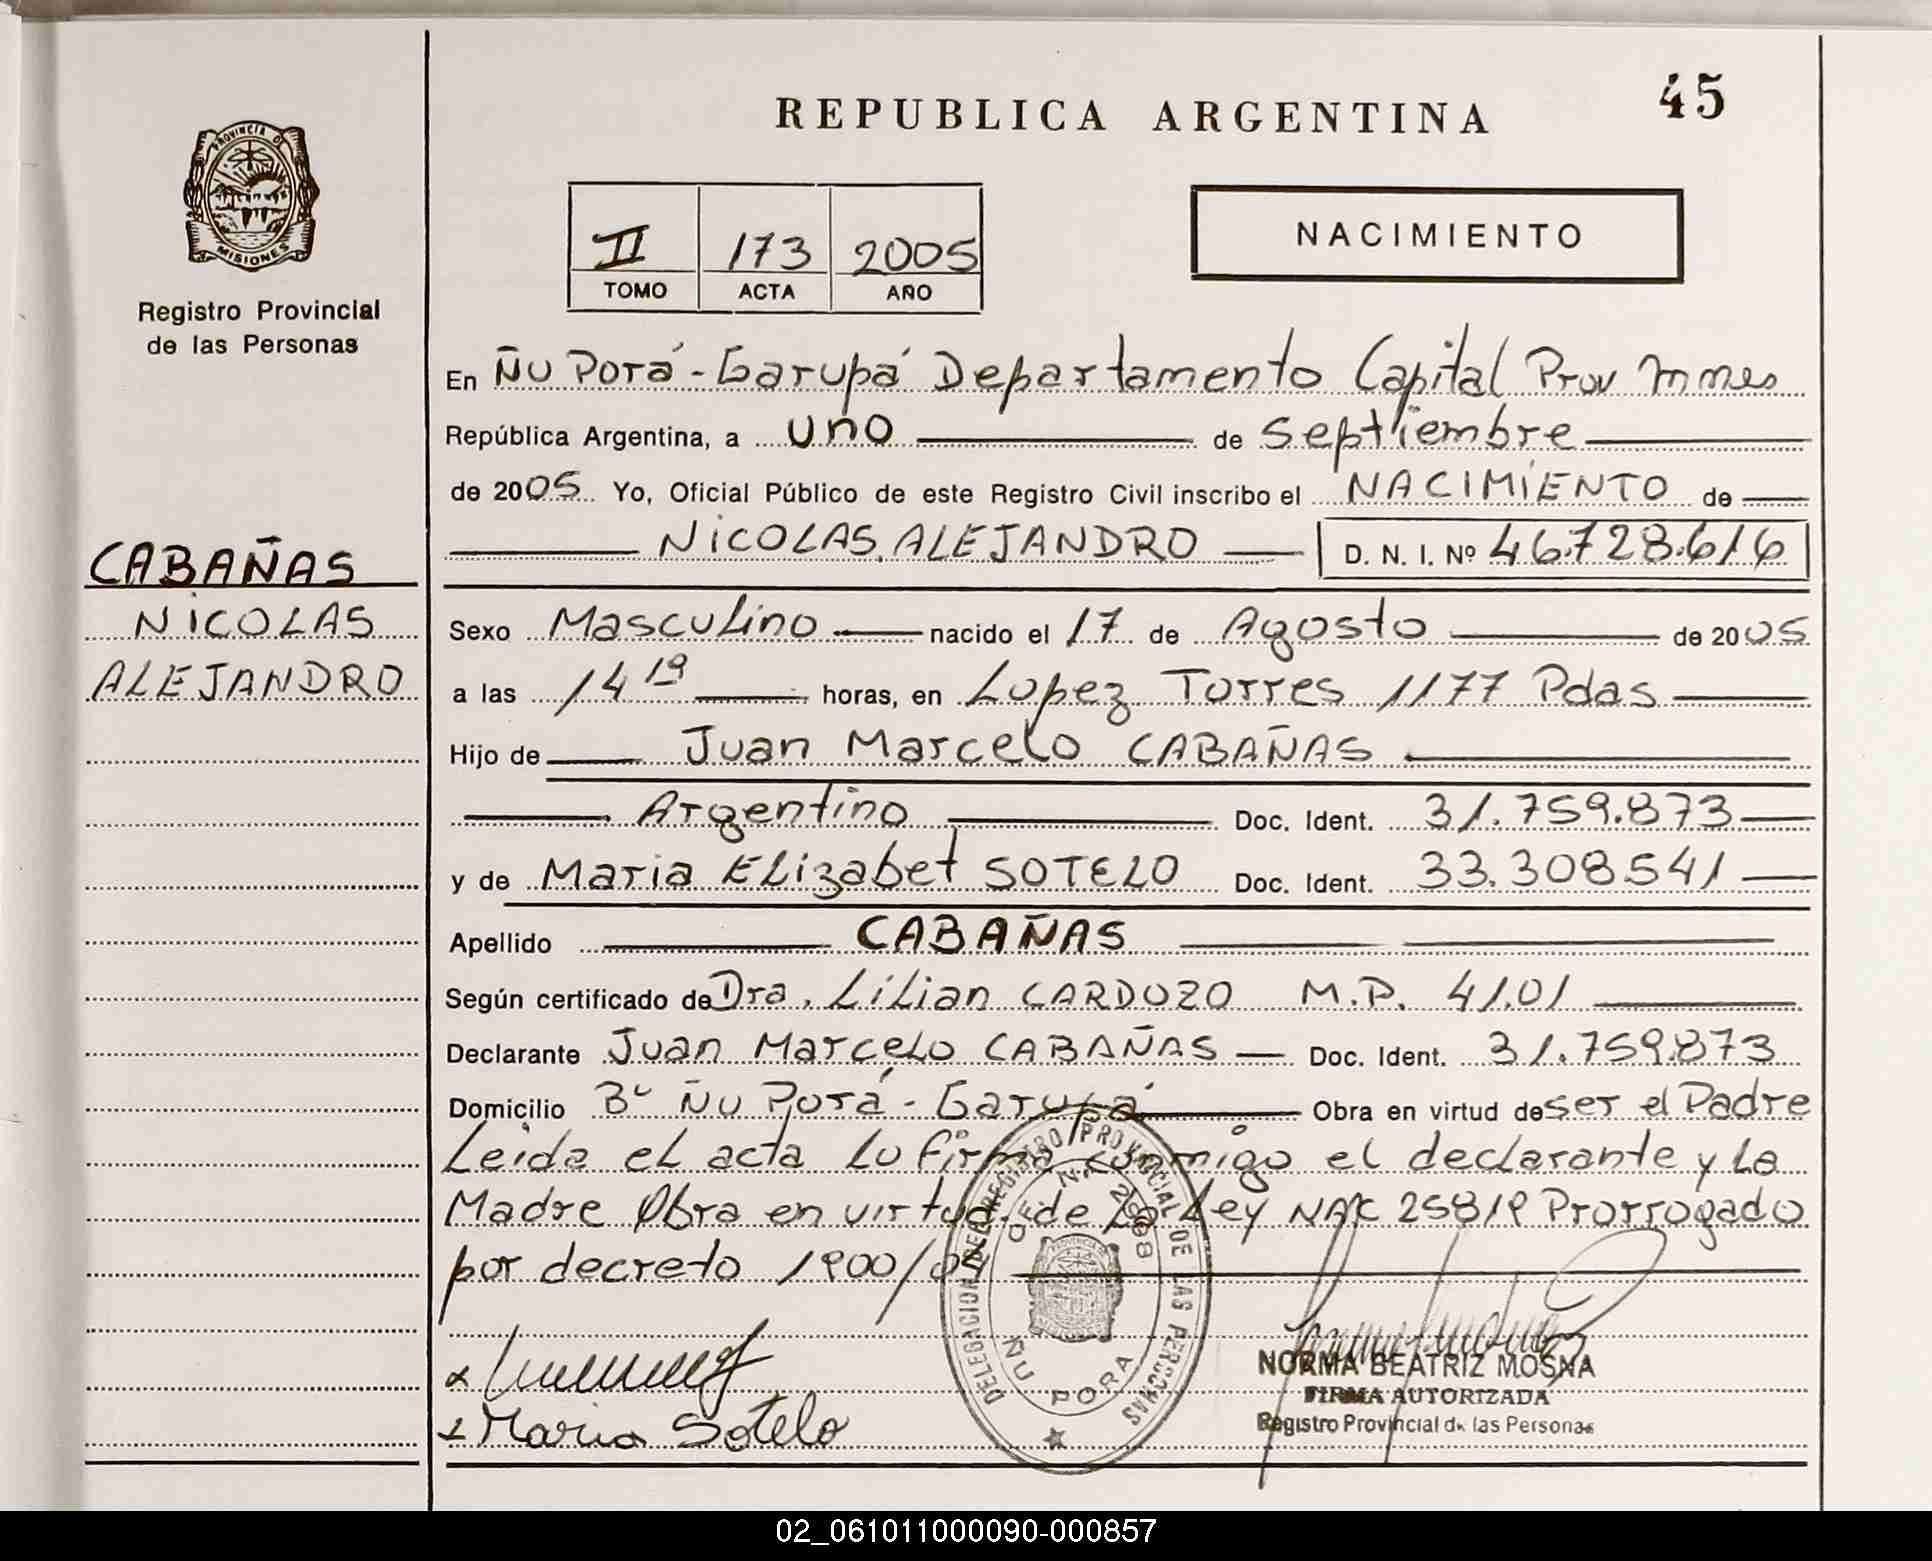 45
REPUBLICA ARGENTINA
PROVINCIA DE
MISIONES
Registro Provincial
de las Personas
II 173 2005
TOMO ACTA AÑO
NACIMIENTO
En Ñu Porá - Garupá Departamento Capital Prov Mnes
República Argentina, a uno de Septiembre
de 2005 Yo, Oficial Público de este Registro Civil inscribo el NACIMIENTO de
NICOLAS ALEJANDRO D. N. I. Nº 46.728.616
CABAÑAS
NICOLAS
ALEJANDRO
Sexo Masculino nacido el 17 de Agosto de 2005
a las 14 19 horas, en Lopez Torres 1177 Pdas
Hijo de Juan Marcelo CABAÑAS
Argentino Doc. Ident. 31.759.873
y de Maria Elizabet SOTELO Doc. Ident. 33.308541
Apellido CABAÑAS
Según certificado de Dra. Lilian CARDOZO M.P. 41.01
Declarante Juan Marcelo CABAÑAS Doc. Ident. 31.759.873
Domicilio Bº Ñu Porá - Garupá Obra en virtud de ser el Padre
Leida el acta lo firma conmigo el declarante y la
Madre Obra en virtud de la Ley NAC 25819 Prorrogado
por decreto 1900/04
Maria Sotelo
DELEGACION DEL REGISTRO PROVINCIAL DE LAS PERSONAS
OF. Nº 2908
ÑU PORA
NORMA BEATRIZ MOSNA
FIRMA AUTORIZADA
Registro Provincial de las Personas
02_061011000090-000857